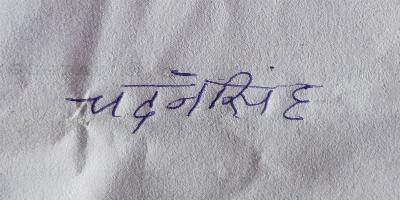 चदनसिंह